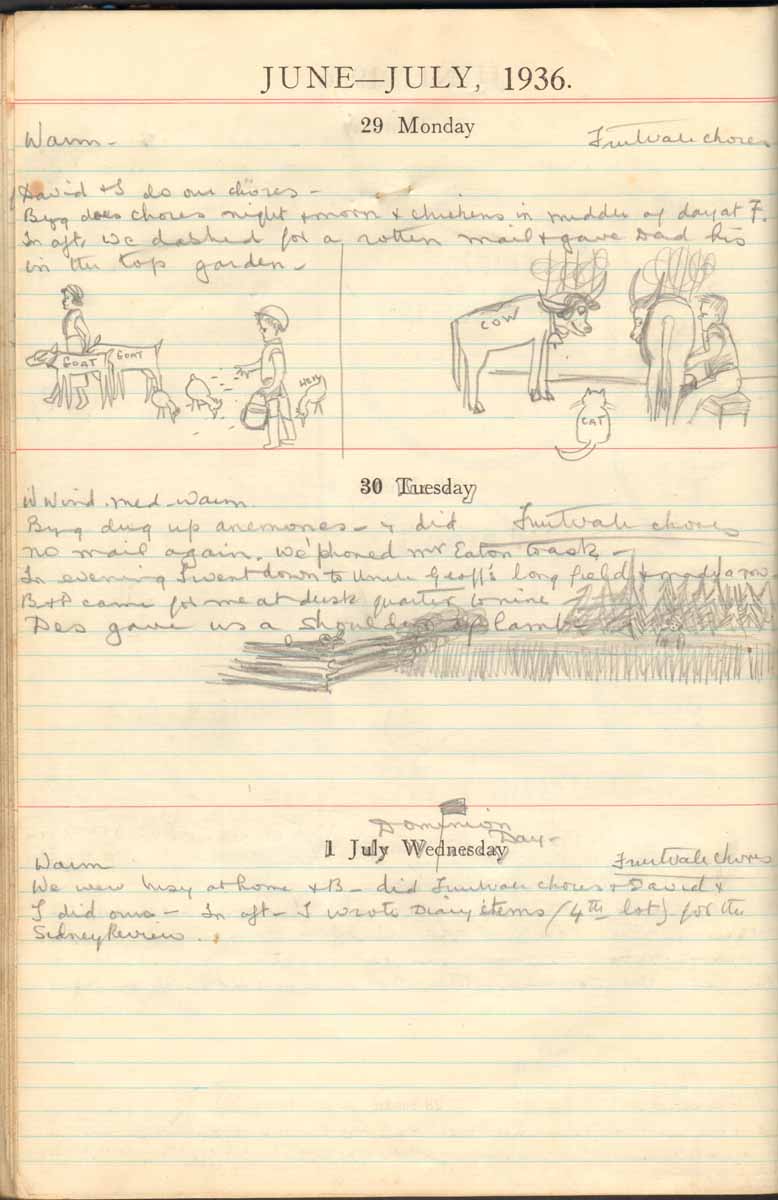 JUNE—JULY, 1936.
29 Monday
Warm - Fruitvale chores
David & I do our chores -
Byng does chores night & morn & chickens in middle of day at F.
In aft, we dashed for a rotten mail & gave Dad his
in the top garden -
GOAT GOAT HEN
COW CAT
30 Tuesday
W Wind. med - warm
Byng dug up anemones - & did Fruitvale chores
no mail again. We 'phoned Mr Eaton to ask -
In evening I went down to Uncle Geoff's long field & made a row.
B & D came for me at dusk quarter to nine
Des gave us a shoulder of lamb
Dominion Day -
1 July Wednesday
Warm Fruitvale chores
We were busy at home & B - did Fruitvale chores & David &
I did ours - In aft - I wrote Diary items (4th lot) for the
Sidney Review.